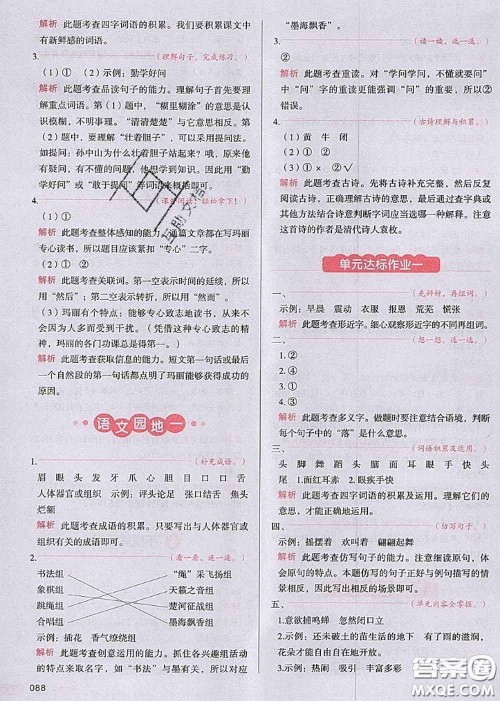 解析 此题考查四字词语的积累。我们要积累课文中
有新鲜感的词语。
3. （理解句子，完成练习。）
（1）① （2）① ② 示例：勤学好问
解析 此题考查品读句子的能力。理解句子首先要理
解重点词语。第（1）题中，“糊里糊涂”的意思是认
识模糊，不明事理。“清清楚楚”与它意思相反。第
（2）题要牢牢抓住“壮着胆子”，可以采用提问法
理解，如：孙中山为什么壮着胆子站起来？他的同学
居然有何反应？他问的目的是什么？因此，可以用“勤
学好问”或“敢于提问”等词语来概括即可。
4.
解析 考查整体感知的能力。通篇文章都在写玛丽
专心读书，所以答案要紧扣“专心”二字。
（2）①
解析 此题考查关联词。第一空表示时间的延续，所以
用“然后”。第二空表示转折，所以用“然而”。
（3）玛丽有这样的特点：能够专心致志地读书，从来不
会因为人多而受到干扰。（凭借这种专心致志的精神，
玛丽的各门功课总是得第一。）
解析 此题考查获取信息的能力。短文第一句话和最后一
个自然段的第一句话都点明了玛丽能够专心致志地读
书。
语文园地一
1. （补充成语。）
眉 眼 头 发 牙 爪 心 胆 目 口 口 舌
人体器官或组织 示例：评头论足 张口结舌 焦头
烂额
解析 此题考查成语的积累。只要写出与人体器官或
组织有关的成语即可。
2. （看一看，连一连。）
书法组 “绳”采飞扬组
象棋组 天籁之音组
跳绳组 楚河征战组
合唱组 墨海飘香组
示例：插花 香气缭绕组
解析 此题考查创意运用的能力。抓住各兴趣组活动
的特点来取名，如“书法”与墨有关，所以对应
088
“墨海飘香”。
3. （读一读，选一选。）
②
解析 此题考查重读。对“学问学问，不懂就要问”
中“问”字的重读更能强调“问”的重要，所以②
错误。
4. （古诗理解与积累。）
（1）黄 牛 闭
（2）①
（3）① × ②√
解析 此题考查古诗。先将古诗补充完整，然后反复
阅读古诗，理解意思。多义字要通过查阅字典或其
他方法结合古诗意思判断字词应当选哪一种解释。注意古
诗的作者是清代诗人袁枚。
单元达标作业一
一、 （先辨析，再组词。）
示例：早晨 震动 衣服 报恩 荒芜 慌张
解析 此题考查形近字。细心观察形近字的不同再组词。
二、 （想一想，选一选。）
1. ①
2. ③
3. ④
4. ②
解析 此题考查多义字。做题时要注意结合语境，判断
出每个句子中的“落”是什么意思。
三、 （词语积累及运用。）
头 脚 舞 蹈 脑 腮 耳 眼 眼 手 快 头
1. 面红耳赤 2. 摇头晃脑 3. 眼疾手快
解析 此题考查四字词语的积累及运用。理解它们的
意思，才能正确运用。
四、 （仿写句子。）
示例：摇摆着 欢叫着 翩翩起舞
解析 此题考查仿写句子的能力。仔细读原句，体会
原句的特点，本题仿写的句子正好与例句描写的情景
相反。
五、 （单元内容全掌握。）
1. 意欲捕鸣蝉 忽然闭口立
2.（1）示例：还未破土的苗的生活的地下 有了雨水，
花朵才能自由自在地生长
（2）示例：热闹 吸引 丰富多彩